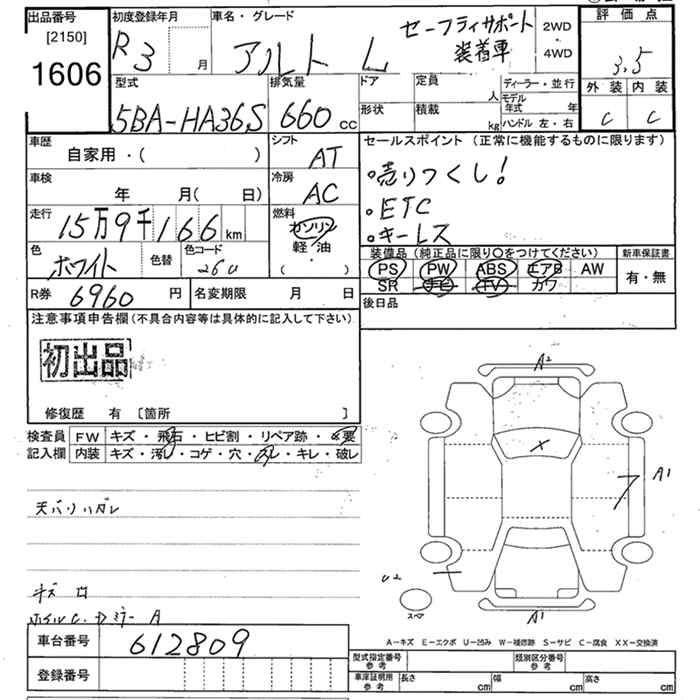 出品番号
[2150]
1606
初度登録年月
R 3 月
車名・グレード
アルト L
セーフティサポート
装着車
2WD
・
4WD
評価点
3.5
外装 内装
C C
型式
5BA-HA36S
排気量
660 cc
ドア
形状
定員
人
積載
kg
ディーラー・並行
モデル
年式 年
ハンドル 左・右
車歴
自家用・( )
シフト
AT
車検
年 月( 日)
冷房
AC
走行
15万9千166 km
燃料
ガソリン
軽・油
( ・ )
色
ホワイト
色替
色コード
26U
R券 6960 円
名変期限 月 日
セールスポイント (正常に機能するものに限ります)
・売りつくし!
・ETC
・キーレス
装備品 (純正品に限り○をつけてください)
PS PW ABS エアB AW
SR ナビ TV カワ
新車保証書
有・無
後日品
注意事項申告欄(不具合内容等は具体的に記入して下さい)
初出品
修復歴 有 〔箇所 〕
検査員
記入欄
FW キズ・飛石・ヒビ割・リペア跡・×要
内装 キズ・汚レ・コゲ・穴・スレ・キレ・破レ
天バリハガレ
キズ
A2
A1
A1
U2
スペア
A-キズ E-エクボ U-凹み W-補修跡 S-サビ C-腐食 XX-交換済
車台番号 612809
登録番号
型式指定番号
参考
類別区分番号
参考
車庫証明用
参考
長さ cm
幅 cm
高さ cm